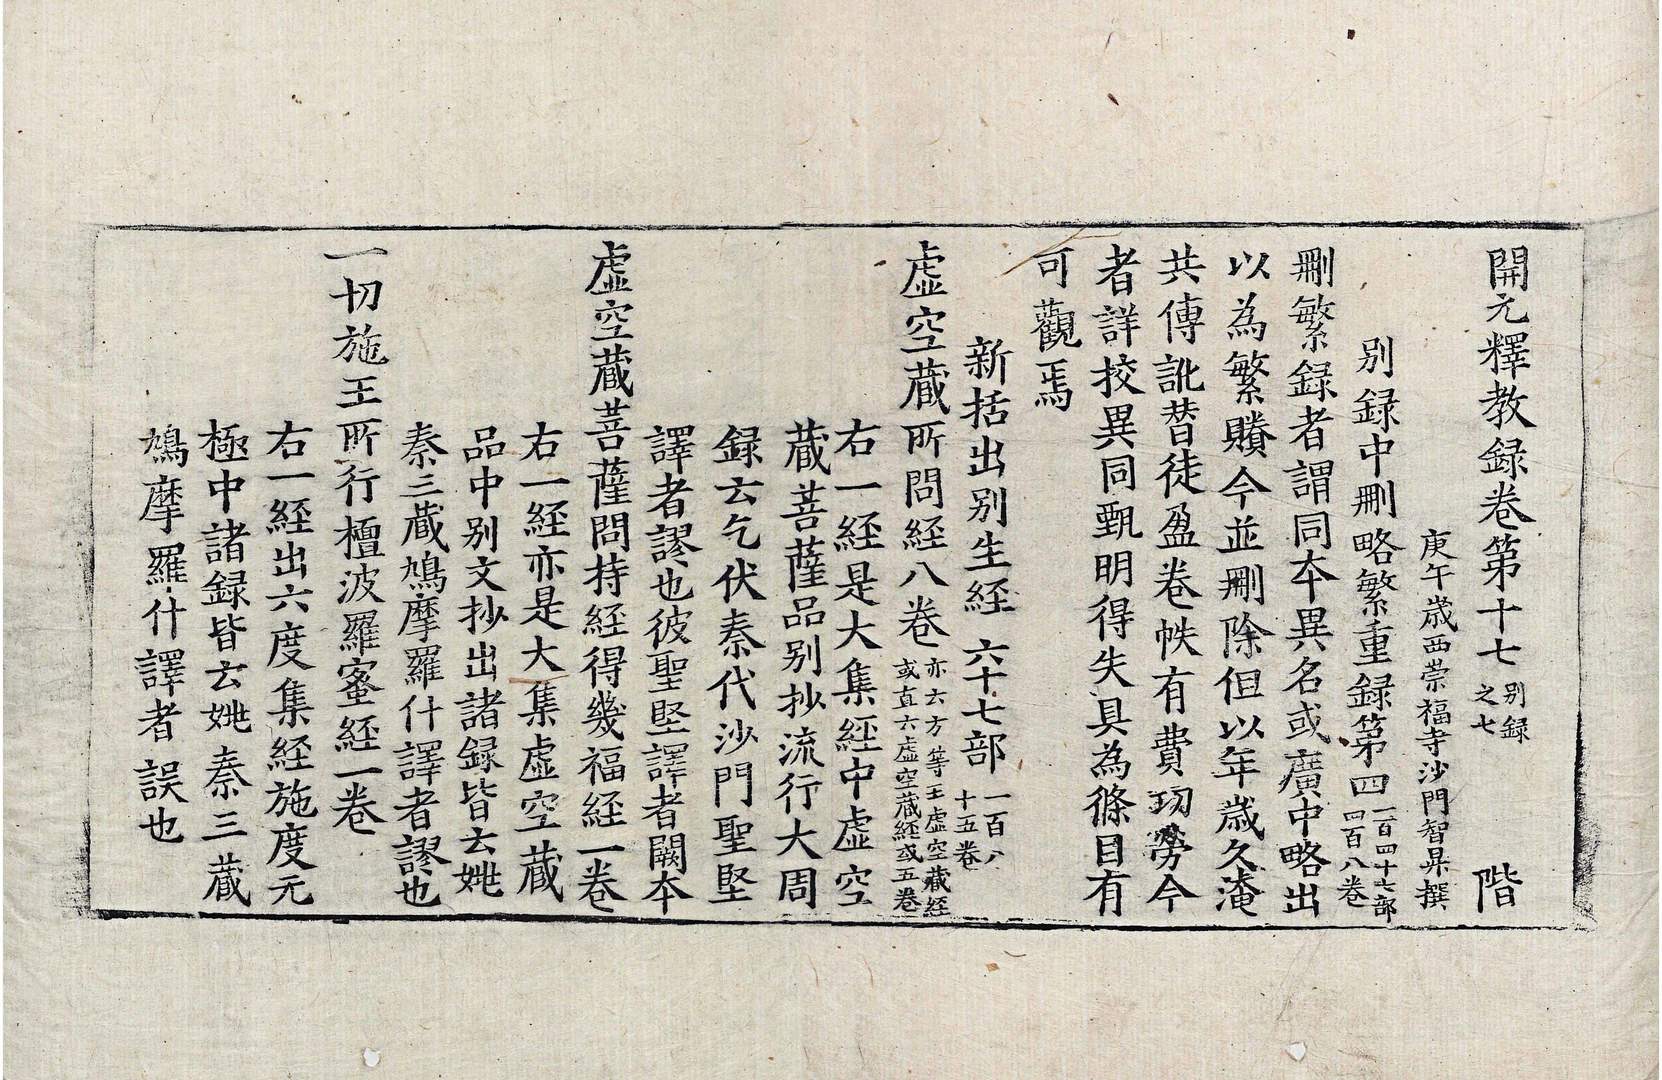 開元釋教録卷第十七 别録之七 階
庚午歲西崇福寺沙門智昇撰
别録中刪略繁重録第四 一百四十七部四百八卷
刪繁録者謂同本異名或廣中略出
以為繁賸今並刪除但以年歲久淹
共傳訛替徒盈卷帙有費功勞今
者詳挍異同甄明得失具為條目有
可觀焉
新括出别生經六十七部 一百八十五卷
虛空藏所問經八卷 亦云方等王虛空藏經或直云虛空藏經或五卷
右一經是大集經中虛空
藏菩薩品别抄流行大周
録云乞伏秦代沙門聖堅
譯者謬也彼聖堅譯者闕本
虛空藏菩薩問持經得幾福經一卷
右一經亦是大集虛空藏
品中别文抄出諸録皆云姚
秦三藏鳩摩羅什譯者謬也
一切施王所行檀波羅蜜經一卷
右一經出六度集經施度无
極中諸録皆云姚秦三藏
鳩摩羅什譯者誤也